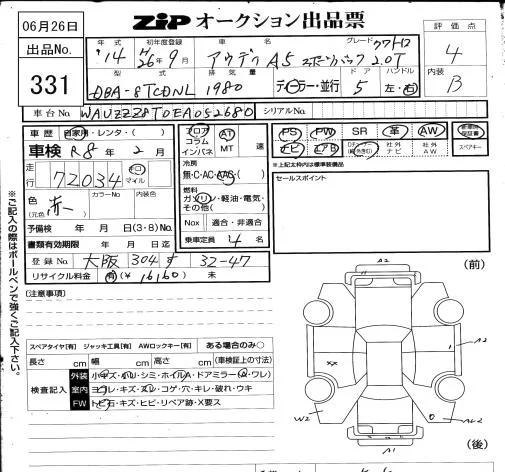 06月26日
ZIP オークション出品票
出品No.
331
年式
'14
初年度登録
H26年9月
車名
アウディ A5 スポーツバック 2.0T
グレード クワトロ
評価点
4
内装
B
型式
DBA-8TCDNL
排気量
1980
ディーラー・並行
ドア
5
ハンドル
左・右
車台No.
WAUZZZ8T0EA052680
シリアルNo.
車歴
自家用・レンタ・( )
車検 R8年2月
走行
72034
キロ
マイル
色
(元色 )
赤
カラーNo.
内装色
予備検 年 月 日(3・8)No.
書類有効期限 年 月 日迄
登録No. 大阪 304 す 32-47
リサイクル料金 有(¥16160) 未
フロア
コラム
インパネ
AT
MT
速
冷房
無・C・AC・AAC・( )
燃料
ガソリン・軽油・電気・
その他( )
Nox 適合・非適合
乗車定員 4 名
PS
PW
SR
革
AW
ナビ
エアB
社外
ナビ
社外
AW
保証書
スペアキー
※上記太枠内は標準装備品
セールスポイント
※ご記入の際はボールペンで強くご記入下さい。
(注意事項)
スペアタイヤ[有] ジャッキ工具[有] AWロックキー[有] ある場合のみ○
長さ cm 幅 cm 高さ cm (車検証上の寸法)
検査記入
外装 小キズ・小ハリ・シミ・ホイル(A・ドアミラー(A・ワレ)
室内 ヨゴレ・キズ・スレ・コゲ・穴・キレ・破れ・ウキ
FW トビ石・キズ・ヒビ・リペア跡・X要ス
(前)
A2
A2
XX
W2
A1
(後)